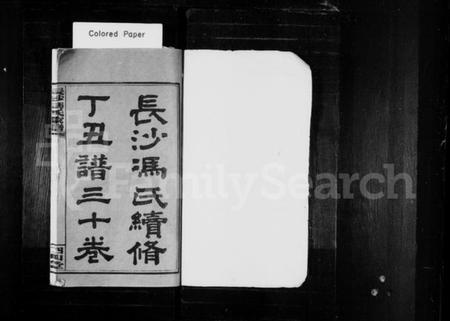 Colored Paper
長沙馮氏續脩
丁丑譜三十卷
FamilySearch